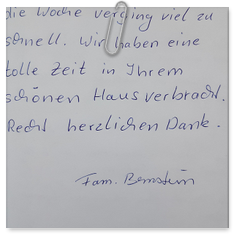 die Woche verging viel zu
schnell. Wir haben eine
tolle Zeit in Ihrem
schönen Haus verbracht.
Recht herzlichen Dank.
Fam. Bernstein